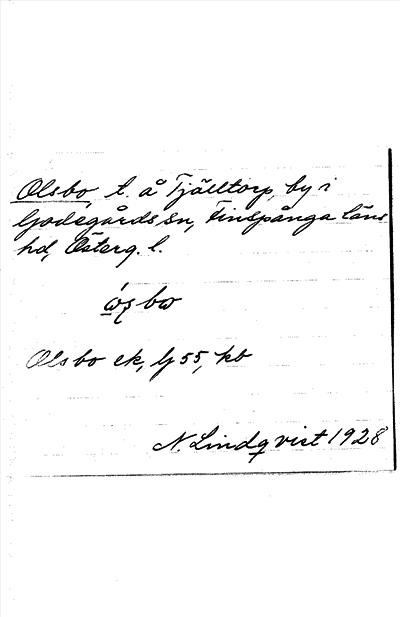 Olsbo, t. å Tjälltorp, by i
Godegårds sn, Finspånga läns
hd, Österg. l.
bω
Olsbo ek, G 55, kb
N. Lindqvist 1928